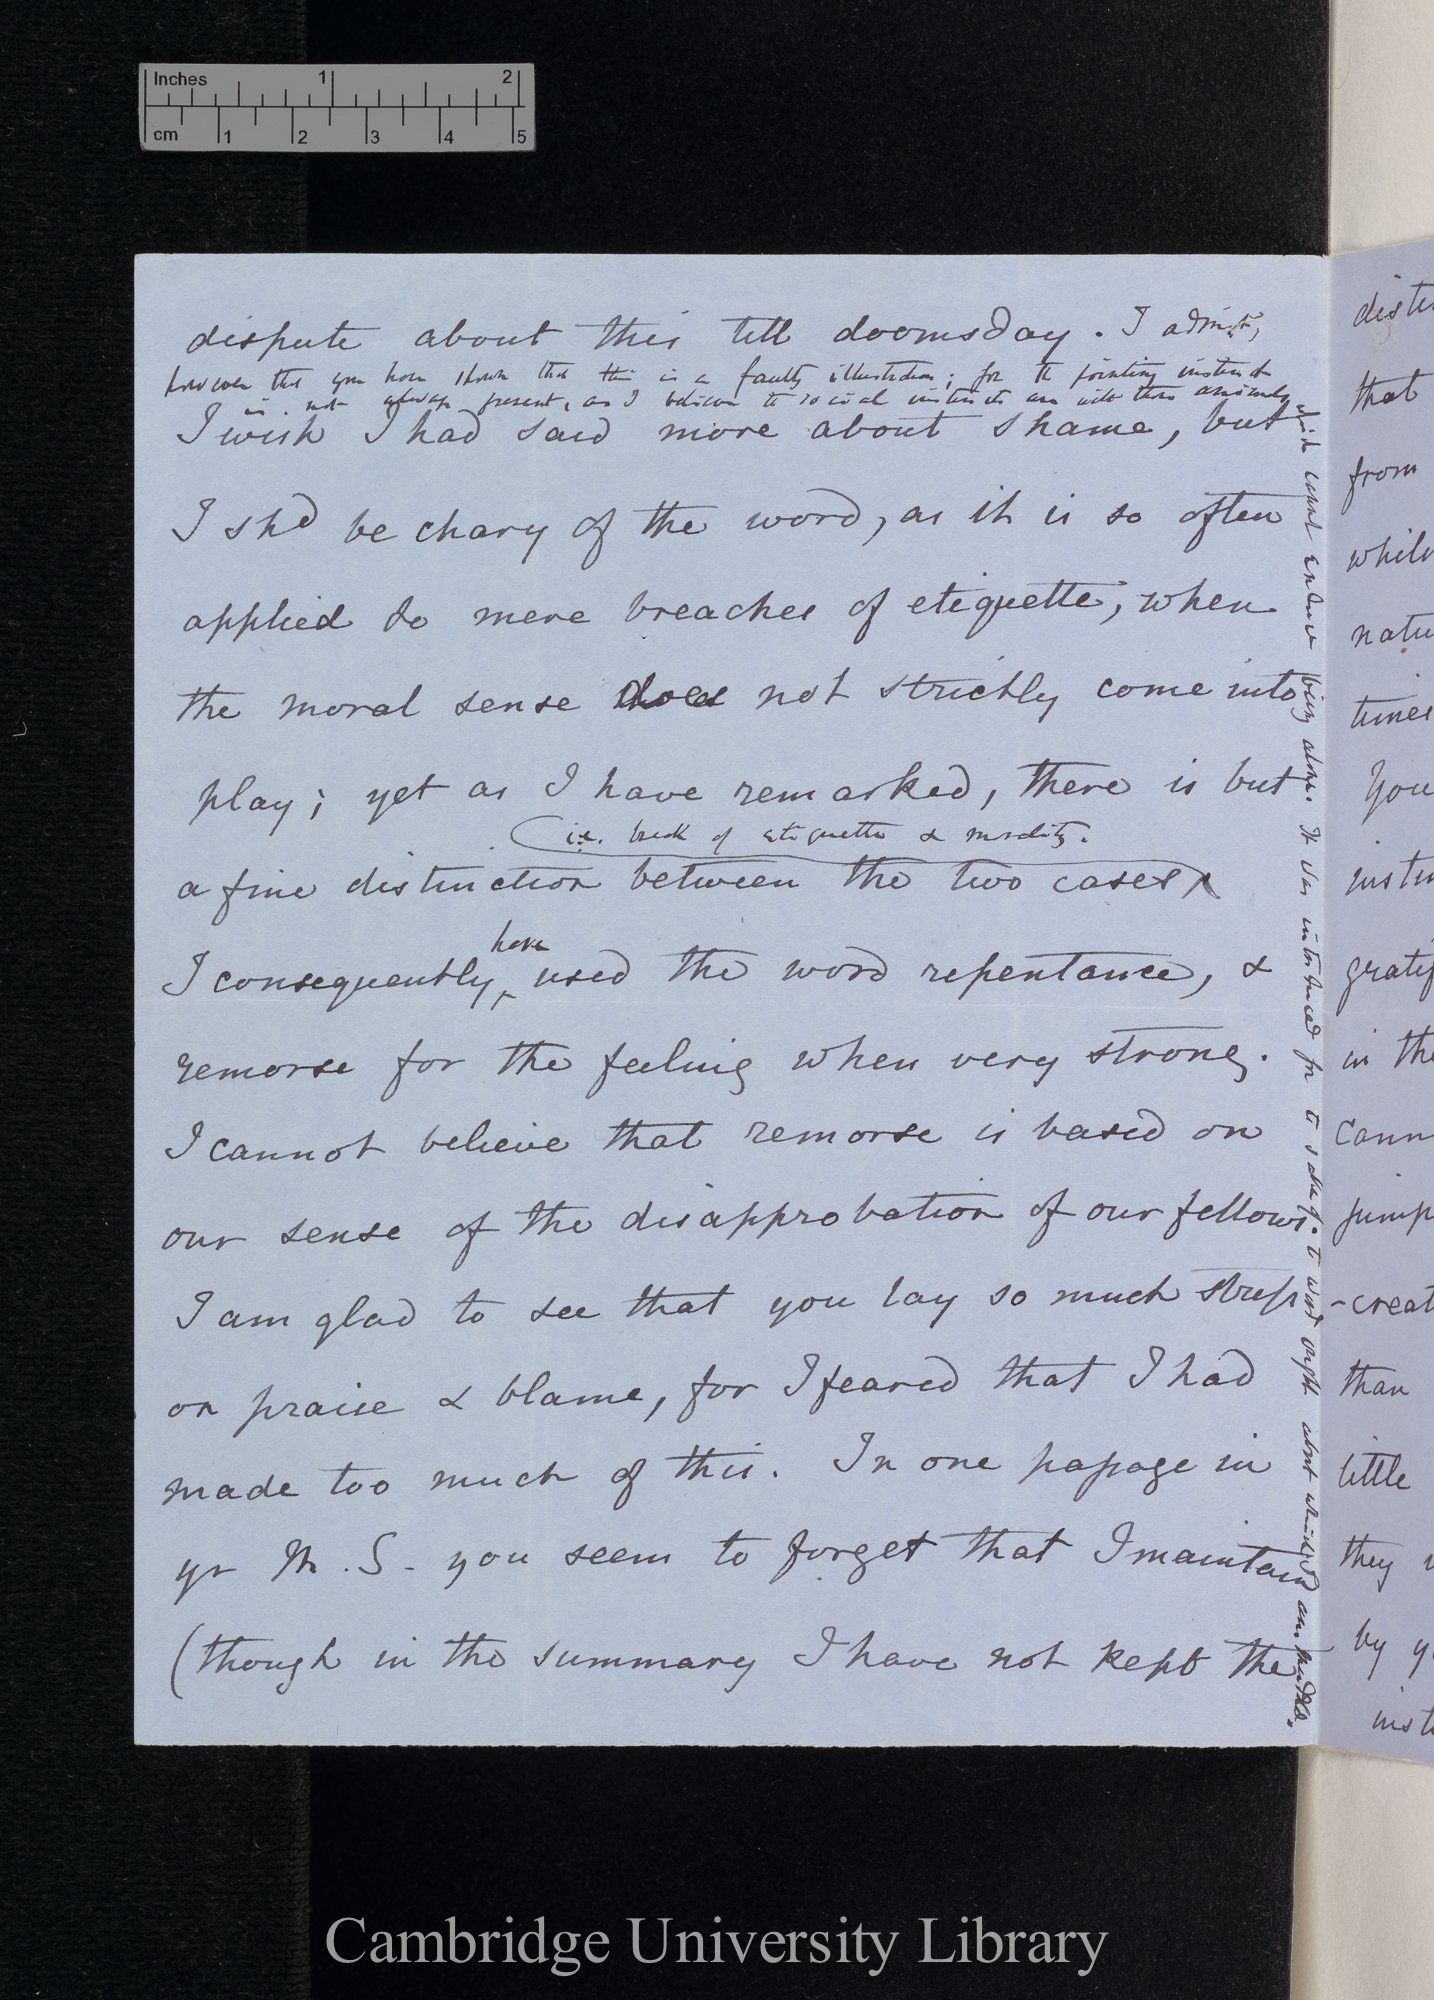 Inches 1 2
cm 1 2 3 4 5
dispute about this till doomsday. I admit,
however that you have shown that this is a faulty illustration; for the pointing instinct
is not always present, as I believe the social instincts are with those animals
which cannot endure being alone. It was introduced for the sake of the word ought about which I am muddled.
I wish I had said more about shame, but
I shd be chary of the word, as it is so often
applied to mere breaches of etiquette, when
the moral sense does not strictly come into
play; yet as I have remarked, there is but
i.e. breach of etiquette & morality.
a fine distinction between the two cases
have
I consequently, used the word repentance, &
remorse for the feeling when very strong.
I cannot believe that remorse is based on
our sense of the disapprobation of our fellows.
I am glad to see that you lay so much stress
on praise & blame, for I feared that I had
made too much of this. In one passage in
yr M.S. you seem to forget that I maintain
(though in the summary I have not kept the
that
from
in the
than
little
they
by
Cambridge University Library